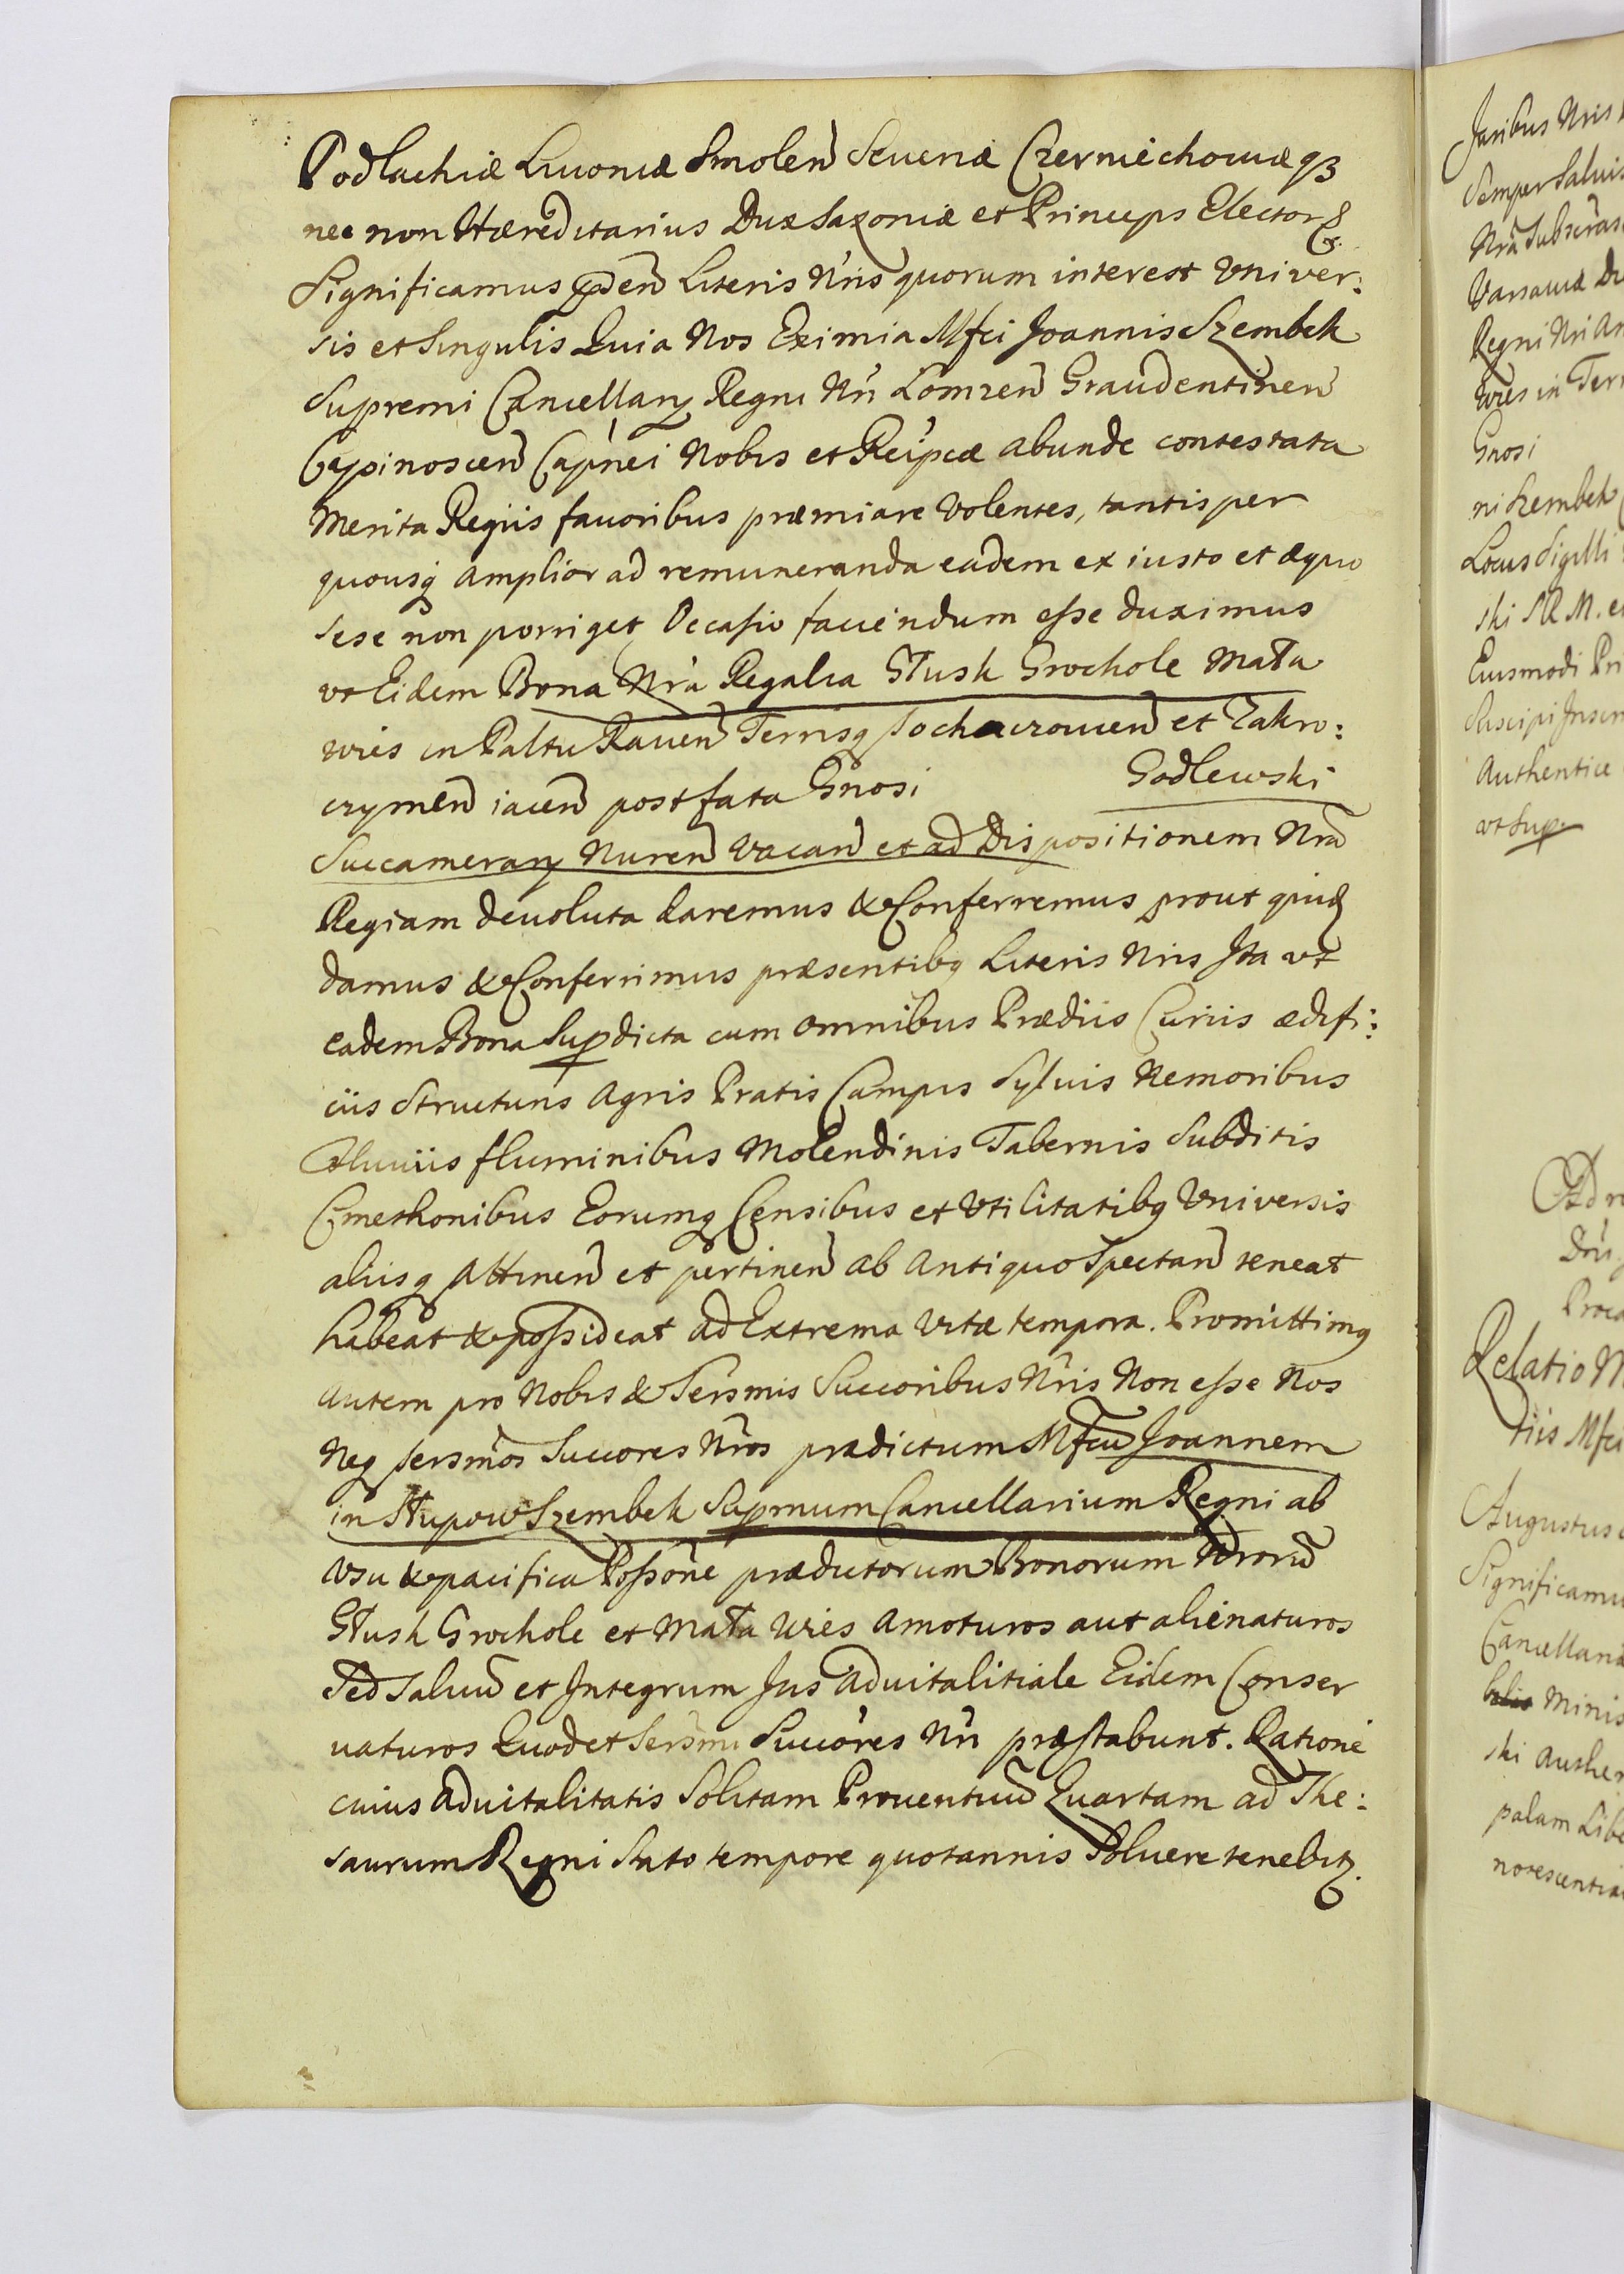 Podlachiæ Liuoniæ Smolen Seueriæ Czerniechouiæqз
nec non Hæreditarius Dux Saxoniæ et Princeps Elector &
Significamus pñ̄en Literis Nr̃is quorum interest Univer:
sis et Singulis Quia Nos Eximia Mfci Joannis Szembek
Supremi Cancellarÿ Regni Nr̃i Lomzen̄ Graudentinen̄
Copinoscen̄ Capn̄ei Nobis et Reipcæ abunde contestata
Merita Regiis fauoribus præmiare Volentes, tantisper
quousq amplior ad remuneranda eadem ex iusto et æquo
sese non porriget Occasio faciendum esse duximus
vt Eidem Bona Nr̃a Regalia Głusk Grochole Mała
wies in Paltu Rauen̄ Terrisq Sochaczouien̄ et Zakro:
czymen̄ iacen̄ post fata Gnosi Godlewski
Succamerarÿ Nuren̄ Vacan̄ et ad Dispositionem Nr̃ā
Regiam deuoluta daremus & Conferremus prout qnidз
damus & Conferimus præsentibq Literis Nr̃is Ita vt
eadem Bona Supdicta cum omnibus Prædiis Curiis ædifi:
ciis Structuris Agris Pratis Campis Syluis Nemoribus
Fluuiis fluminibus Molendinis Tabernis Subditis
Cmethonibus Eorumq Censibus et Vtilitatibq Vniversis
aliisq Attinen̄ et pertinen̄ ab Antiquo Spectan̄ teneat
habeat & possideat ad Extrema vitæ tempora. Promittimq
autem pro Nobis & Sersmis Succoribus Nr̃is Non esse Nos
Neq Sersmos Succores Nr̃os prædictum Mfcū Joannem
in Słupow Szembek Supmum Cancellarium Regni ab
vsu & pacifica Possone prædictorum Bonorum Nr̃orū
Głusk Grochole et Mała Wies amoturos aut alienaturos
Sed saluū et Integrum Jus aduitalitiale Eidem Conser
uaturos Quod et Sersmi Succores Nr̃i præstabunt. Ratione
cuius aduitalitatis Solitam Prouentuū Quartam ad The:
saurum Regni Stato tempore quotannis Soluere tenebitз.
Juribus Nris
Semper Saluis
Nra Subscras
Varsauiæ Di
Regni Nri An
wies in Terr
Gnosi
ni Szembek
Locus Sigilli
ski SRM. e
Eiusmodi Pri
Suscipi Inscri
Authentice
vt Sup.
Ad r
Dni
Proc
Relatio N
tiis Mfci
Augustus
Significamu
Cancellaria
Minis
ski Authen
palam Libe
notescentia